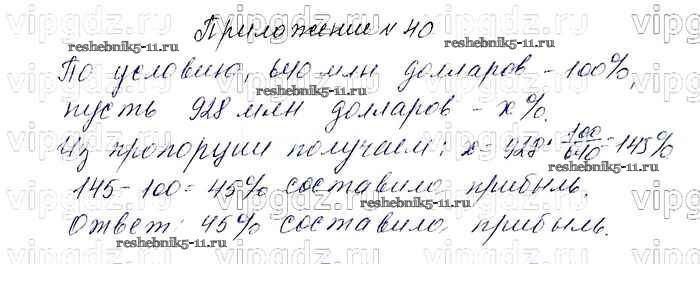 Приложение № 40
По условию, 640 млн долларов - 100%,
пусть 928 млн долларов - x%.
Из пропорции получаем: x = 928 · 100/640 = 145%
145 - 100 = 45% составила прибыль.
Ответ: 45% составила прибыль.
reshebnik5-11.ru
reshebnik5-11.ru
reshebnik5-11.ru
reshebnik5-11.ru
reshebnik5-11.ru
vipgdz.ru vipgdz.ru vipgdz.ru vipgdz.ru